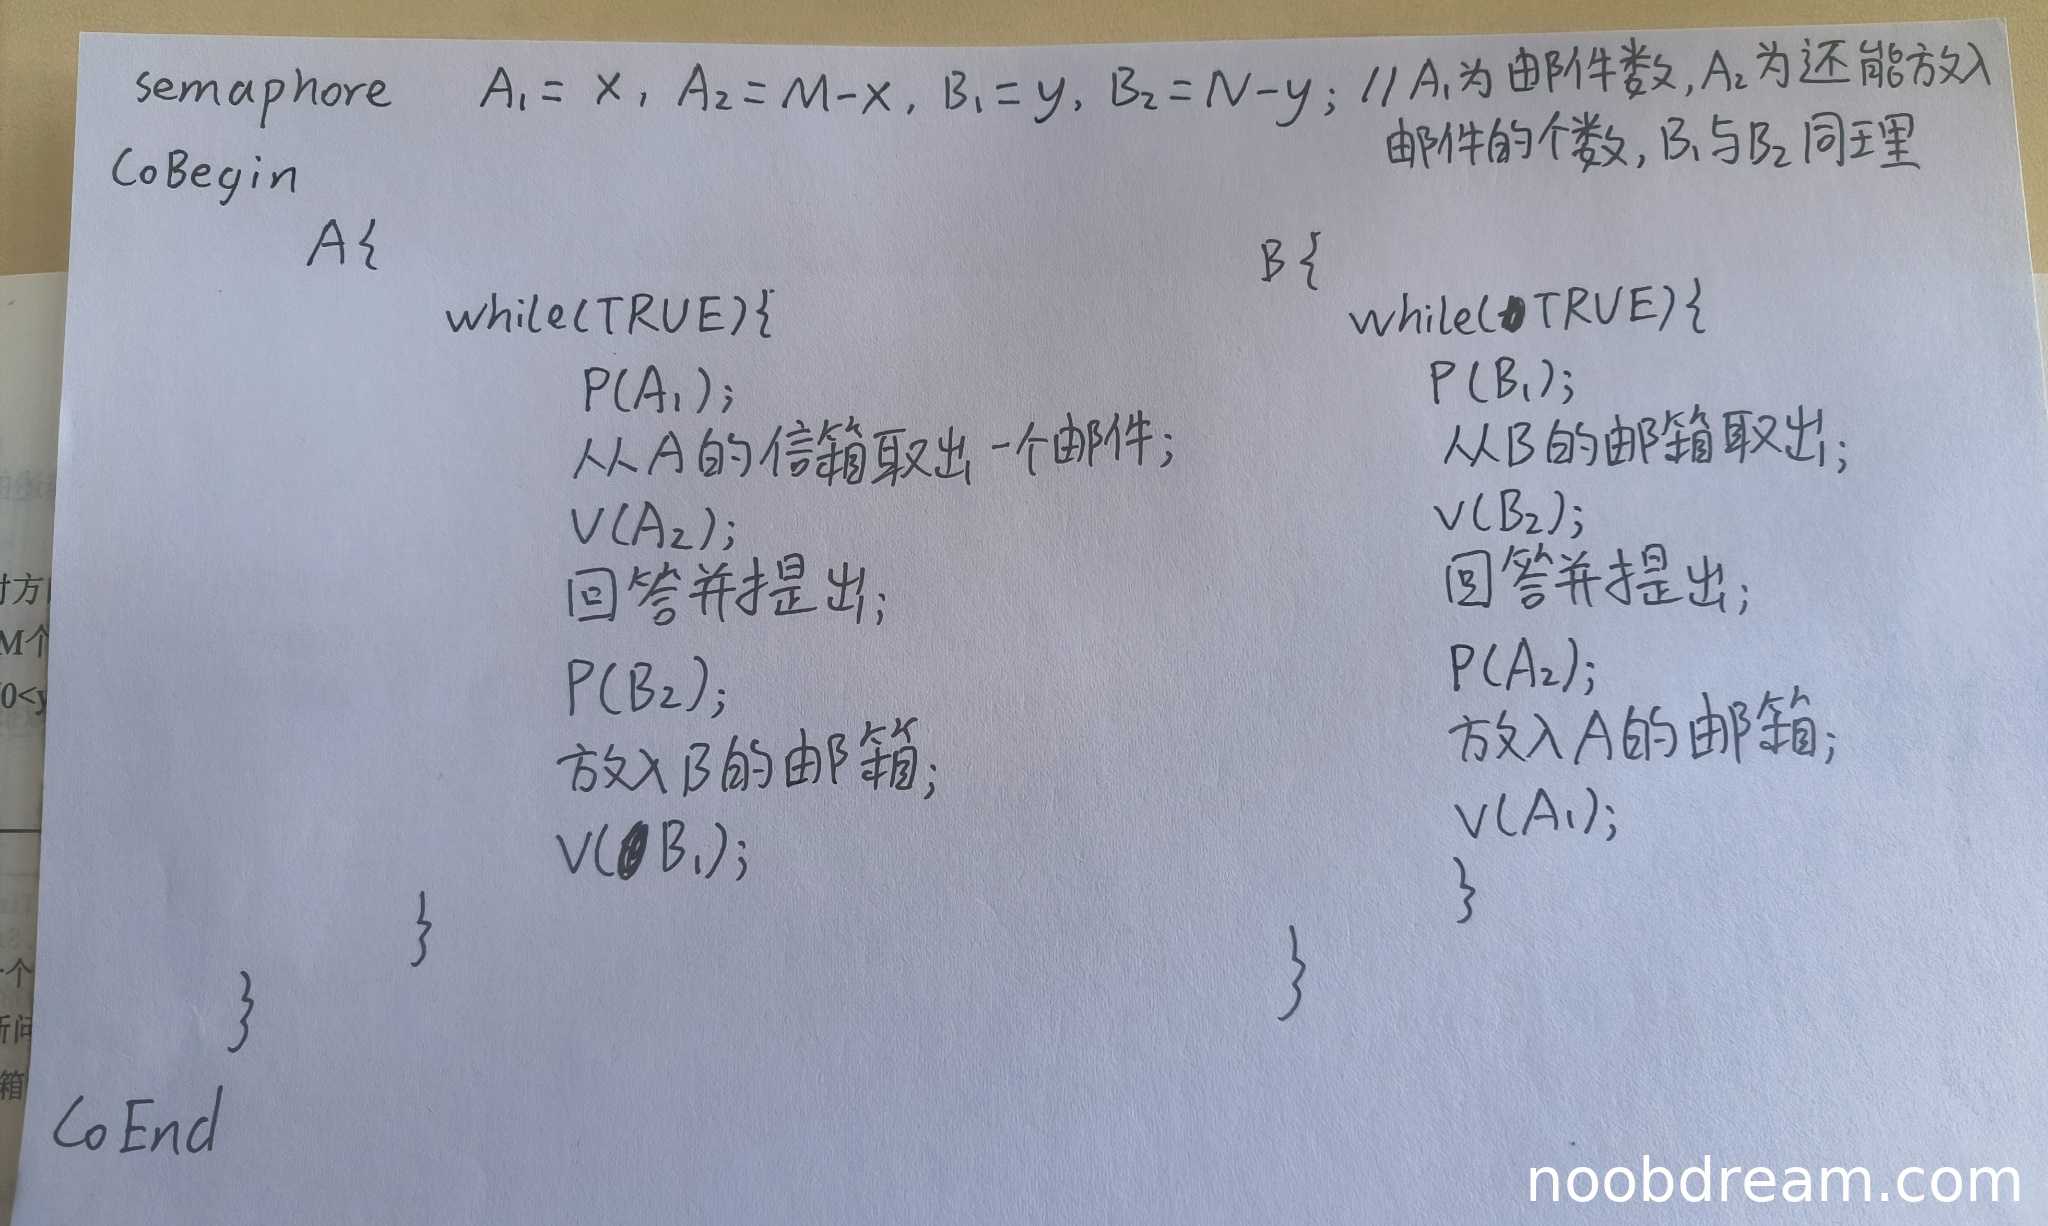 semaphore A₁ = x, A₂ = M-x, B₁ = y, B₂ = N-y; //A₁为邮件数,A₂为还能放入
邮件的个数,B₁与B₂同理
CoBegin
A{
while(TRUE){
P(A₁);
从A的信箱取出一个邮件;
V(A₂);
回答并提出;
P(B₂);
放入B的邮箱;
V(B₁);
}
}
B{
while(TRUE){
P(B₁);
从B的邮箱取出;
V(B₂);
回答并提出;
P(A₂);
放入A的邮箱;
V(A₁);
}
}
CoEnd
对方
M个
0<y
个
新问
箱
noobdream.com